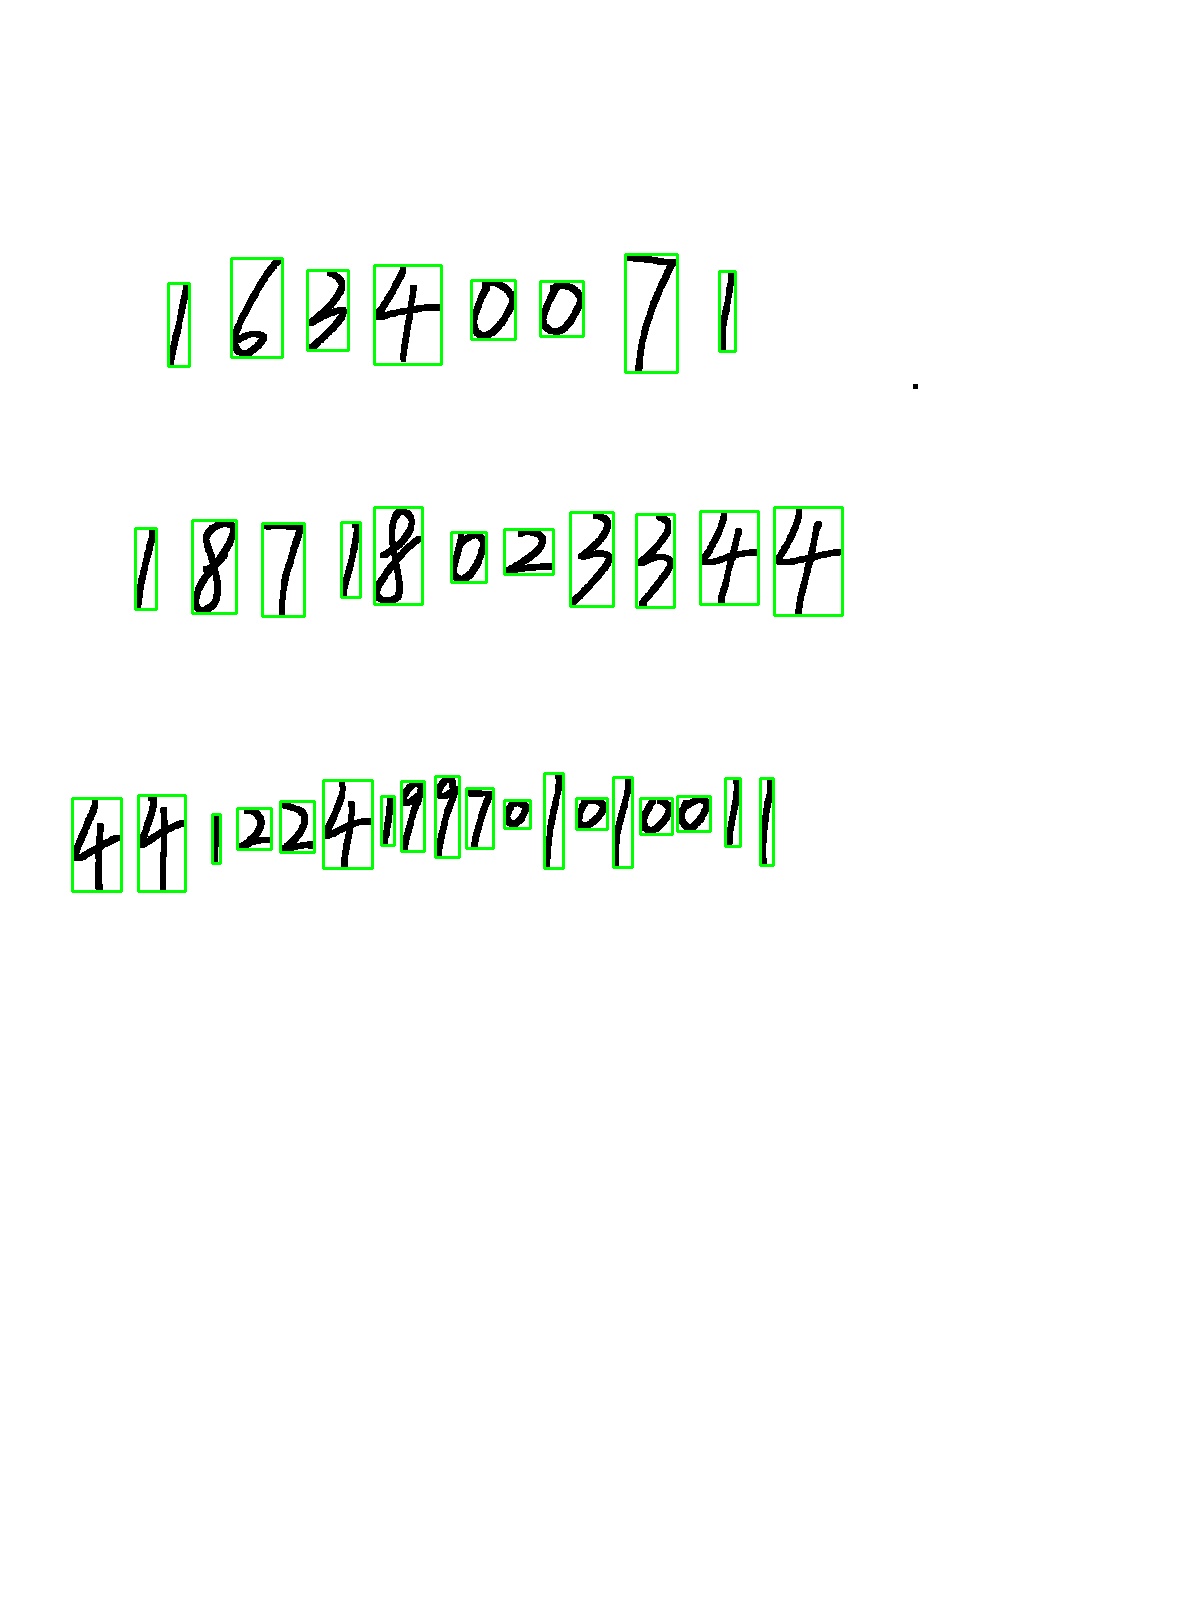 16340071
18718023344
44122419970101001 1